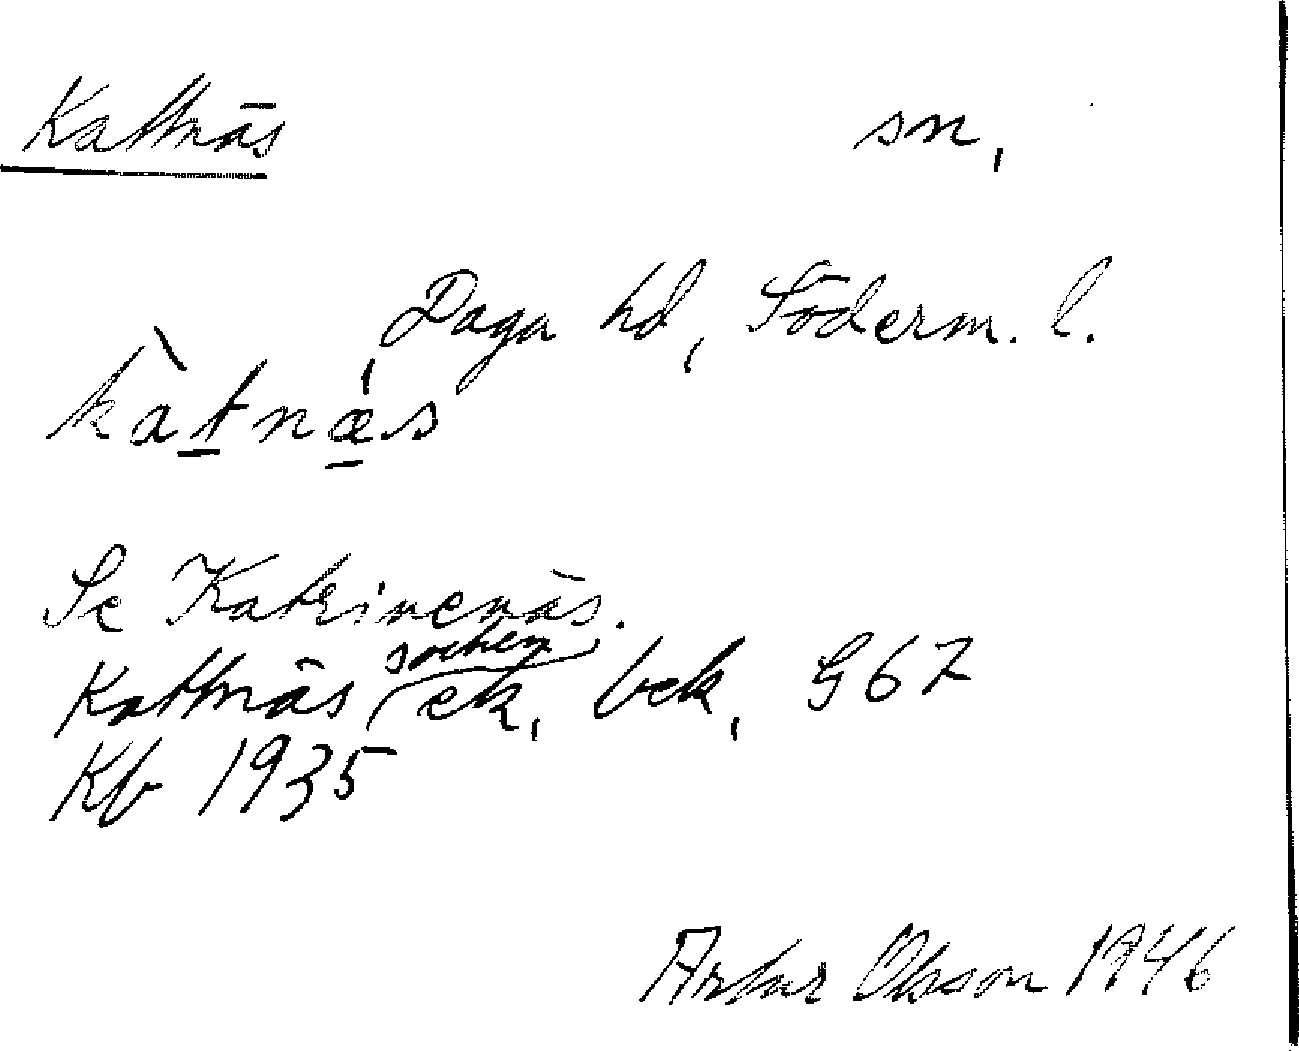 Kattnäs sn,
Daga hd, Söderm. l.
kàtnæ̀s
Se Katrinenäs.
Kattnäs socken
ek, bek, G67
Kb 1935
Artur Olsson 1946